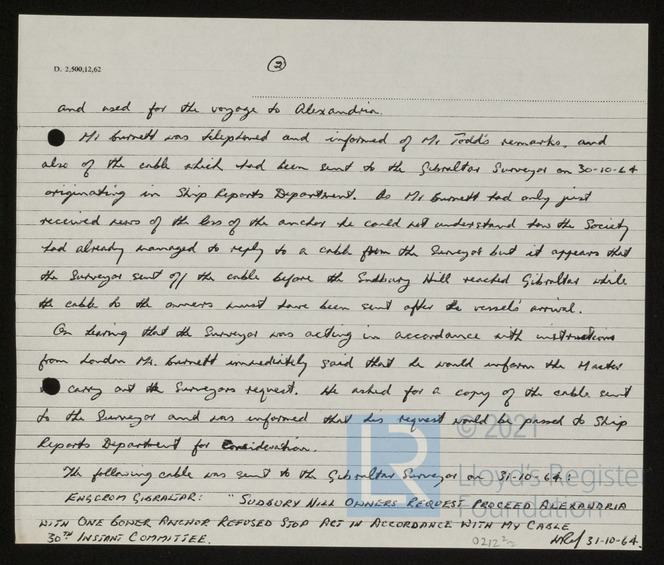 D. 2,500,12,62
2
and used for the voyage to Alexandria.
Mr Burnett was telephoned and informed of Mr Todd's remarks, and
also of the cable which had been sent to the Gibraltar Surveyor on 30-10-64
originating in Ship Reports Department. As Mr Burnett had only just
received news of the loss of the anchor he could not understand how the Society
had already managed to reply to a cable from the Surveyor but it appears that
the Surveyor sent off the cable before the Sudbury Hill reached Gibraltar while
the cable to the owners must have been sent after the vessel's arrival.
On hearing that the Surveyor was acting in accordance with instructions
from London Mr. Burnett immediately said that he would inform the Master
carry out the Surveyors request. He asked for a copy of the cable sent
to the Surveyor and was informed that his request would be passed to Ship
Reports Department for consideration.
The following cable was sent to the Gibraltar Surveyor on 31-10-64:
ENGCROM GIBRALTAR: "SUDBURY HILL OWNERS REQUEST PROCEED ALEXANDRIA
WITH ONE BOWER ANCHOR REFUSED STOP ACT IN ACCORDANCE WITH MY CABLE
30TH INSTANT COMMITTEE. 31-10-64.
LR © 2021
Lloyd's Register
Foundation